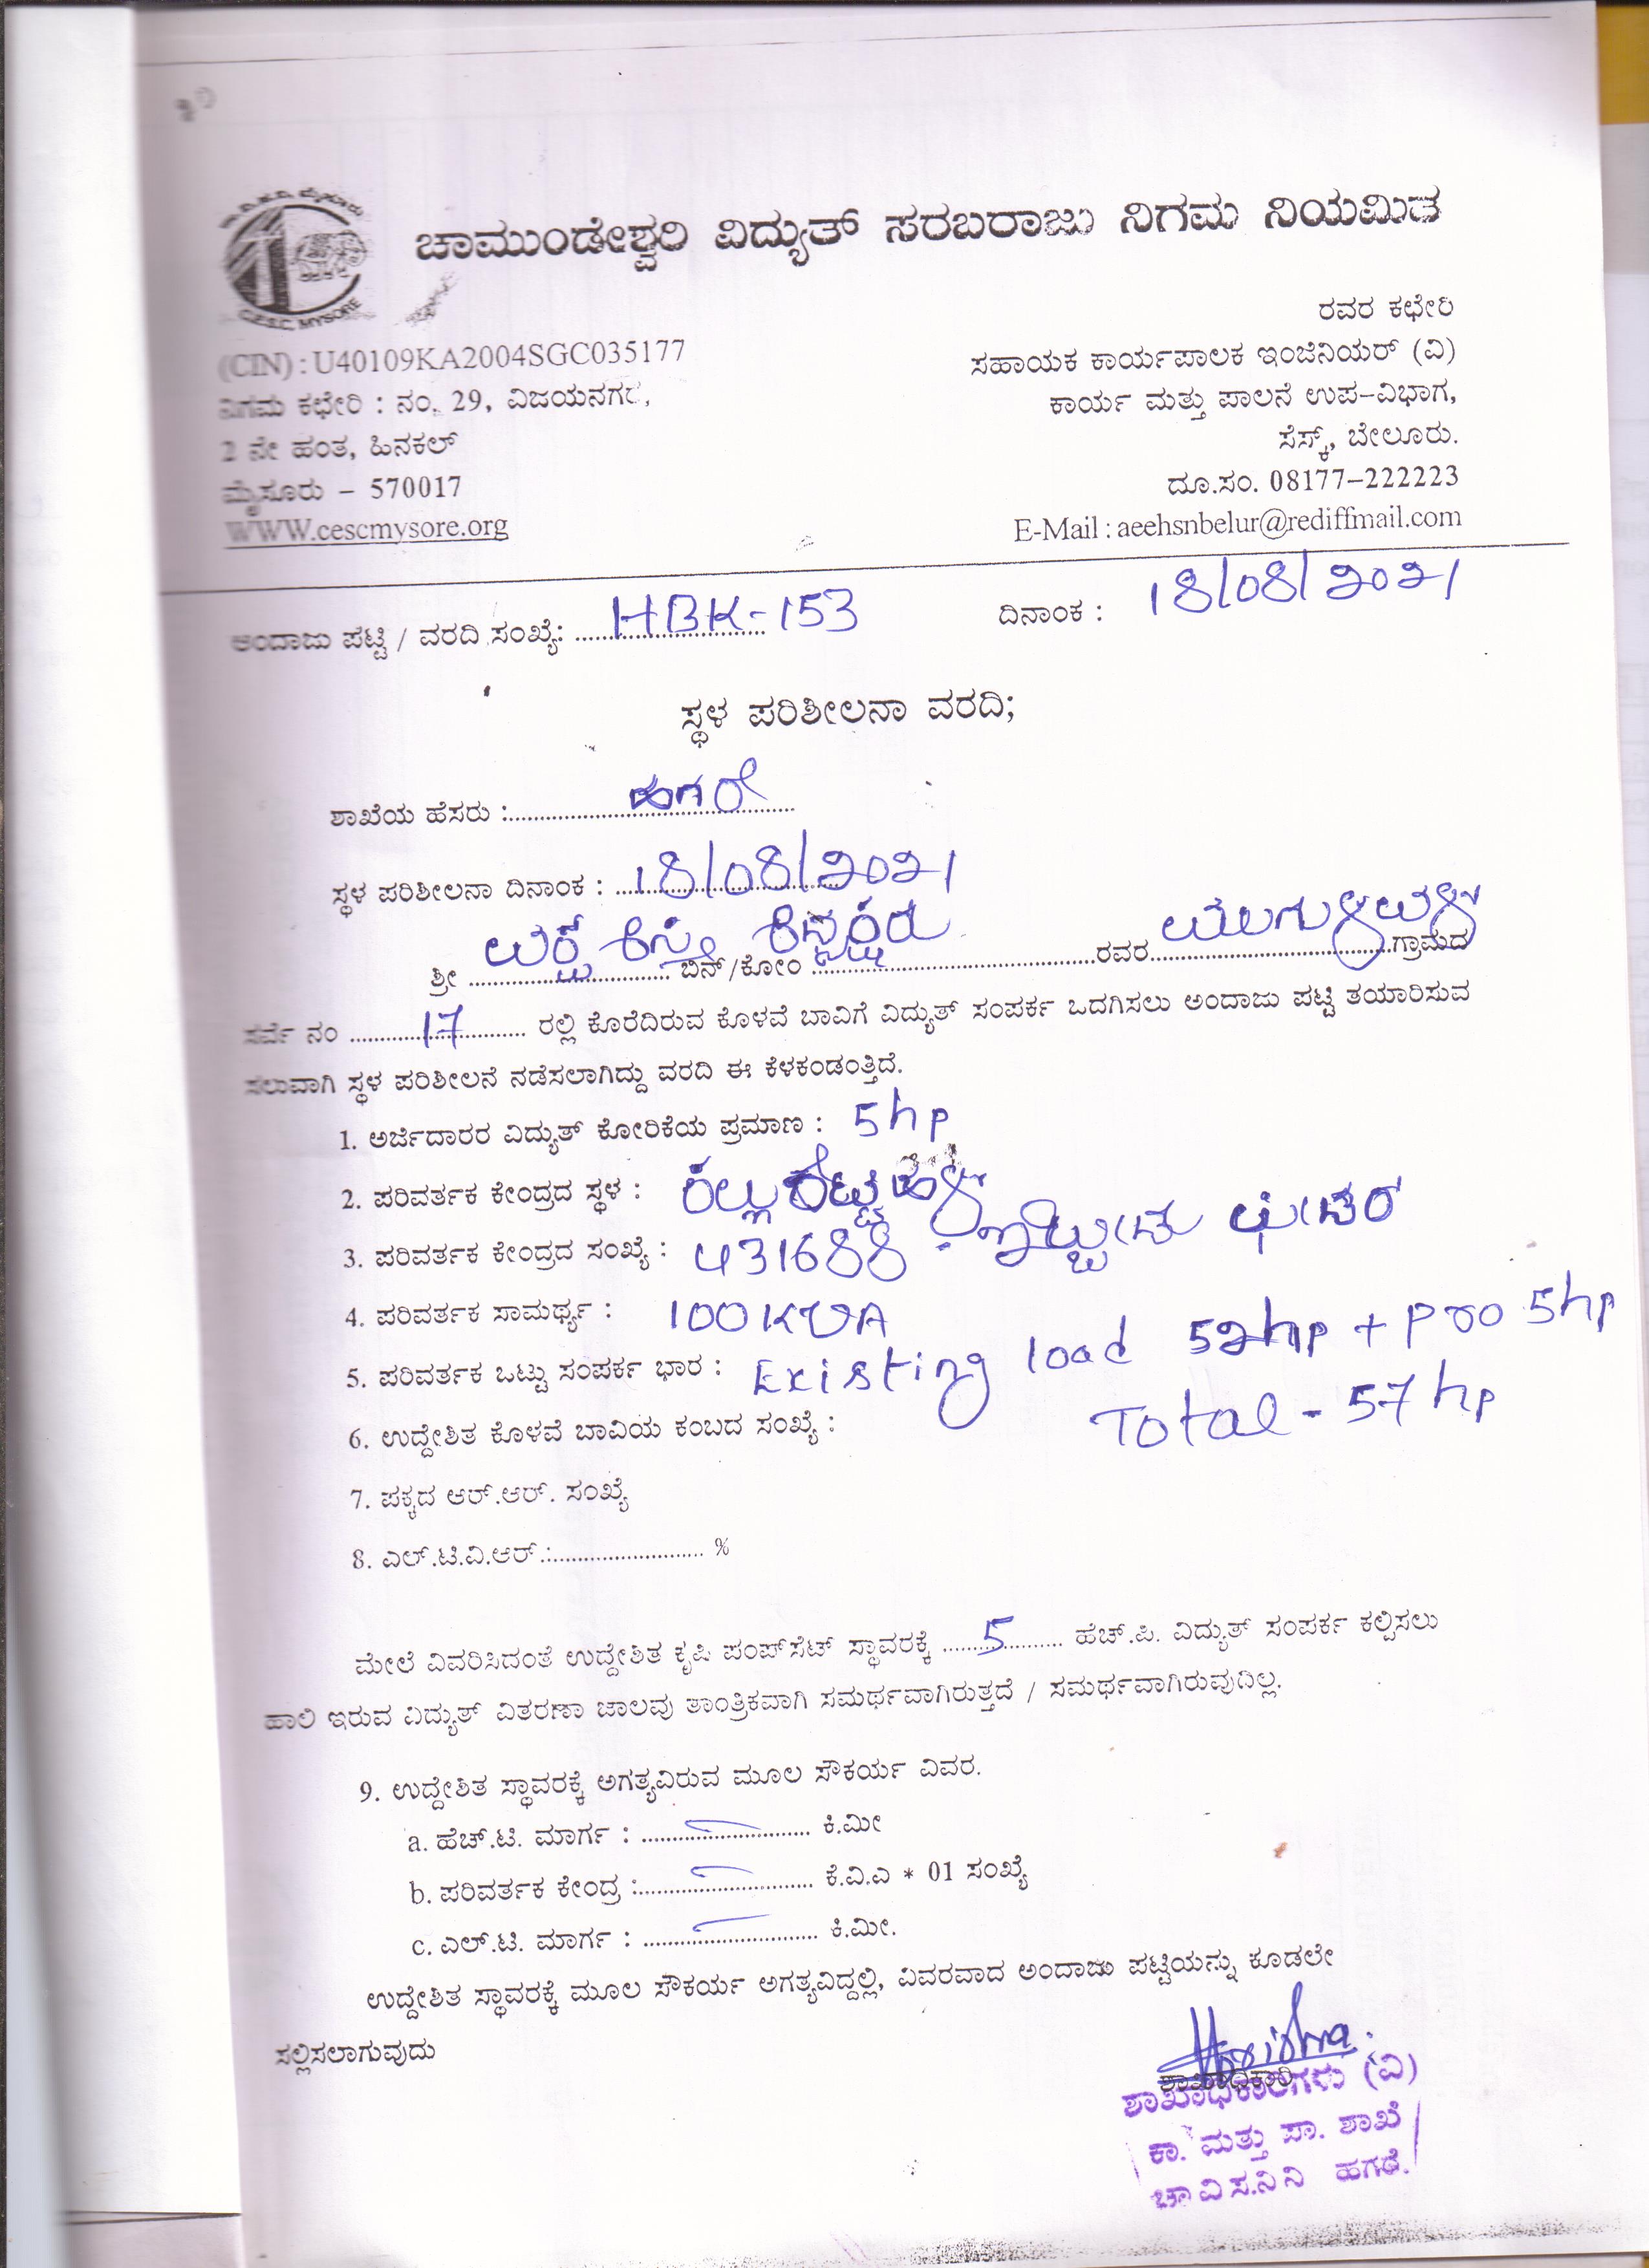 ಚಾಮುಂಡೇಶ್ವರಿ ವಿದ್ಯುತ್ ಸರಬರಾಜು ನಿಗಮ ನಿಯಮಿತ
C.E.S.C. MYSORE
(CIN) : U40109KA2004SGC035177
ನಿಗಮ ಕಛೇರಿ : ನಂ. 29, ವಿಜಯನಗರ,
2 ನೇ ಹಂತ, ಹಿನಕಲ್
ಮೈಸೂರು – 570017
WWW.cescmysore.org
ರವರ ಕಛೇರಿ
ಸಹಾಯಕ ಕಾರ್ಯಪಾಲಕ ಇಂಜಿನಿಯರ್ (ವಿ)
ಕಾರ್ಯ ಮತ್ತು ಪಾಲನೆ ಉಪ-ವಿಭಾಗ,
ಸೆಸ್ಕ್, ಬೇಲೂರು.
ದೂ.ಸಂ. 08177-222223
E-Mail : aeehsnbelur@rediffmail.com
ಅಂದಾಜು ಪಟ್ಟಿ / ವರದಿ ಸಂಖ್ಯೆ: HBK-153 ದಿನಾಂಕ : 18/08/2021
ಸ್ಥಳ ಪರಿಶೀಲನಾ ವರದಿ;
ಶಾಖೆಯ ಹೆಸರು : ಹಗರೆ
ಸ್ಥಳ ಪರಿಶೀಲನಾ ದಿನಾಂಕ : 18/08/2021
ಶ್ರೀ ಬಿನ್/ಕೋಂ ರವರ ಗ್ರಾಮದ
ಸರ್ವೆ ನಂ 17 ರಲ್ಲಿ ಕೊರೆದಿರುವ ಕೊಳವೆ ಬಾವಿಗೆ ವಿದ್ಯುತ್ ಸಂಪರ್ಕ ಒದಗಿಸಲು ಅಂದಾಜು ಪಟ್ಟಿ ತಯಾರಿಸುವ
ಸಲುವಾಗಿ ಸ್ಥಳ ಪರಿಶೀಲನೆ ನಡೆಸಲಾಗಿದ್ದು ವರದಿ ಈ ಕೆಳಕಂಡಂತ್ತಿದೆ.
1. ಅರ್ಜಿದಾರರ ವಿದ್ಯುತ್ ಕೋರಿಕೆಯ ಪ್ರಮಾಣ : 5hp
2. ಪರಿವರ್ತಕ ಕೇಂದ್ರದ ಸ್ಥಳ :
3. ಪರಿವರ್ತಕ ಕೇಂದ್ರದ ಸಂಖ್ಯೆ : 431688
4. ಪರಿವರ್ತಕ ಸಾಮರ್ಥ್ಯ : 100KVA
5. ಪರಿವರ್ತಕ ಒಟ್ಟು ಸಂಪರ್ಕ ಭಾರ : Existing load 52hp + pro 5hp
Total - 57hp
6. ಉದ್ದೇಶಿತ ಕೊಳವೆ ಬಾವಿಯ ಕಂಬದ ಸಂಖ್ಯೆ :
7. ಪಕ್ಕದ ಆರ್.ಆರ್. ಸಂಖ್ಯೆ
8. ಎಲ್.ಟಿ.ವಿ.ಆರ್.: %
ಮೇಲೆ ವಿವರಿಸಿದಂತೆ ಉದ್ದೇಶಿತ ಕೃಷಿ ಪಂಪ್‌ಸೆಟ್ ಸ್ಥಾವರಕ್ಕೆ 5 ಹೆಚ್.ಪಿ. ವಿದ್ಯುತ್ ಸಂಪರ್ಕ ಕಲ್ಪಿಸಲು
ಹಾಲಿ ಇರುವ ವಿದ್ಯುತ್ ವಿತರಣಾ ಜಾಲವು ತಾಂತ್ರಿಕವಾಗಿ ಸಮರ್ಥವಾಗಿರುತ್ತದೆ / ಸಮರ್ಥವಾಗಿರುವುದಿಲ್ಲ.
9. ಉದ್ದೇಶಿತ ಸ್ಥಾವರಕ್ಕೆ ಅಗತ್ಯವಿರುವ ಮೂಲ ಸೌಕರ್ಯ ವಿವರ.
a. ಹೆಚ್.ಟಿ. ಮಾರ್ಗ : ಕಿ.ಮೀ
b. ಪರಿವರ್ತಕ ಕೇಂದ್ರ : ಕೆ.ವಿ.ಎ * 01 ಸಂಖ್ಯೆ
c. ಎಲ್.ಟಿ. ಮಾರ್ಗ : ಕಿ.ಮೀ.
ಉದ್ದೇಶಿತ ಸ್ಥಾವರಕ್ಕೆ ಮೂಲ ಸೌಕರ್ಯ ಅಗತ್ಯವಿದ್ದಲ್ಲಿ, ವಿವರವಾದ ಅಂದಾಜು ಪಟ್ಟಿಯನ್ನು ಕೂಡಲೇ
ಸಲ್ಲಿಸಲಾಗುವುದು
ಶಾಖಾಧಿಕಾರಿ
ಶಾಖಾಧಿಕಾರಿಗಳು (ವಿ)
ಕಾ. ಮತ್ತು ಪಾ. ಶಾಖೆ
ಚಾ.ವಿ.ಸ.ನಿ.ನಿ ಹಗರೆ.